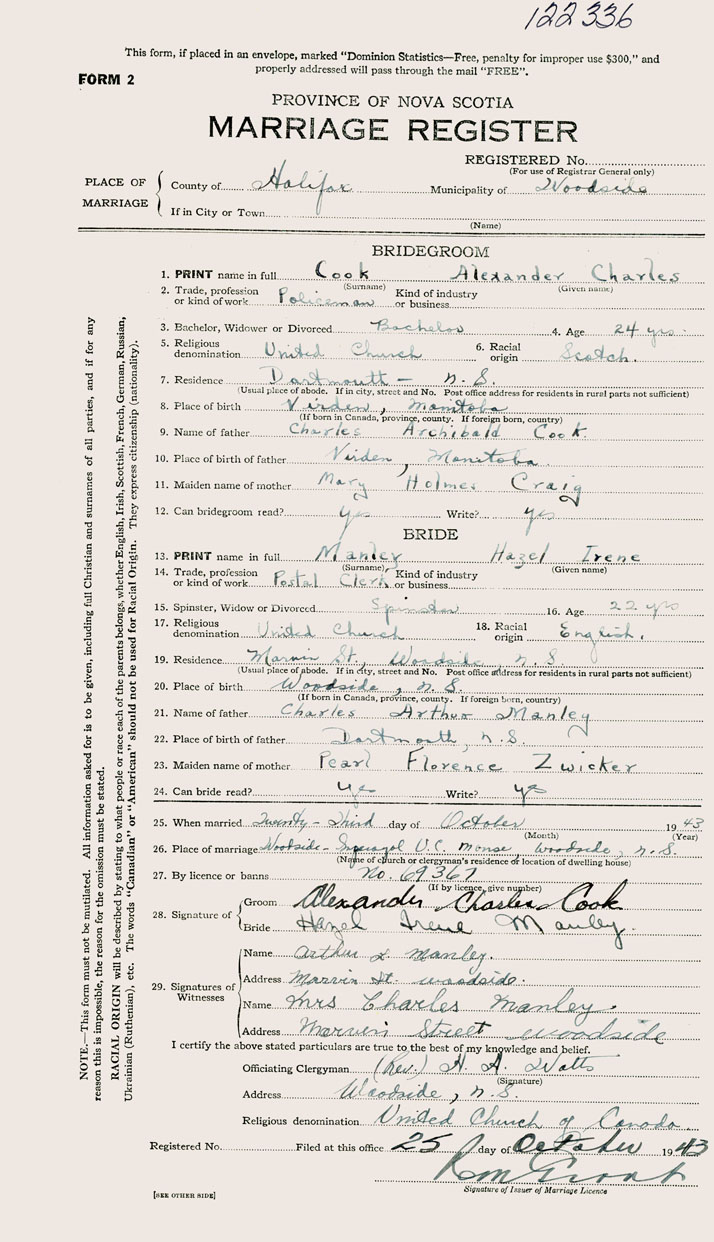 122336
This form, if placed in an envelope, marked “Dominion Statistics—Free, penalty for improper use $300,” and
properly addressed will pass through the mail “FREE”.
FORM 2
PROVINCE OF NOVA SCOTIA
MARRIAGE REGISTER
REGISTERED No.
(For use of Registrar General only)
PLACE OF MARRIAGE
County of Halifax Municipality of Woodside
If in City or Town
(Name)
BRIDEGROOM
1. PRINT name in full Cook Alexander Charles
(Surname) (Given name)
2. Trade, profession or kind of work Policeman Kind of industry or business
3. Bachelor, Widower or Divorced Bachelor 4. Age 24 yrs.
5. Religious denomination United Church 6. Racial origin Scotch.
7. Residence Dartmouth - N.S.
(Usual place of abode. If in city, street and No. Post office address for residents in rural parts not sufficient)
8. Place of birth Virden, Manitoba
(If born in Canada, province, county. If foreign born, country)
9. Name of father Charles Archibald Cook
10. Place of birth of father Virden, Manitoba.
11. Maiden name of mother Mary Holmes Craig
12. Can bridegroom read? yes Write? yes
BRIDE
13. PRINT name in full Manley Hazel Irene
(Surname) (Given name)
14. Trade, profession or kind of work Postal Clerk Kind of industry or business
15. Spinster, Widow or Divorced Spinster 16. Age 22 yrs
17. Religious denomination United Church 18. Racial origin English.
19. Residence Marvin St, Woodside, N.S.
(Usual place of abode. If in city, street and No. Post office address for residents in rural parts not sufficient)
20. Place of birth Woodside, N.S.
(If born in Canada, province, county. If foreign born, country)
21. Name of father Charles Arthur Manley
22. Place of birth of father Dartmouth, N.S.
23. Maiden name of mother Pearl Florence Zwicker
24. Can bride read? yes Write? yes
25. When married Twenty-Third day of October 1943
(Month) (Year)
26. Place of marriage Woodside- U.C. Manse, Woodside, N.S.
(Name of church or clergyman's residence or location of dwelling house)
27. By licence or banns No. 69367
(If by licence, give number)
28. Signature of
Groom Alexander Charles Cook
Bride Hazel Irene Manley.
29. Signatures of Witnesses
Name Arthur L Manley.
Address Marvin St. Woodside.
Name Mrs Charles Manley
Address Marvin Street Woodside
I certify the above stated particulars are true to the best of my knowledge and belief.
Officiating Clergyman (Rev.) H. A. Watts
(Signature)
Address Woodside, N.S.
Religious denomination United Church of Canada.
Registered No. Filed at this office 25 day of October 1943
Signature of Issuer of Marriage Licence
[SEE OTHER SIDE]
NOTE.—This form must not be mutilated. All information asked for is to be given, including full Christian and surnames of all parties, and if for any
reason this is impossible, the reason for the omission must be stated.
RACIAL ORIGIN will be described by stating to what people or race each of the parents belongs, whether English, Irish, Scottish, French, German, Russian,
Ukrainian (Ruthenian), etc. The words “Canadian” or “American” should not be used for Racial Origin. They express citizenship (nationality).